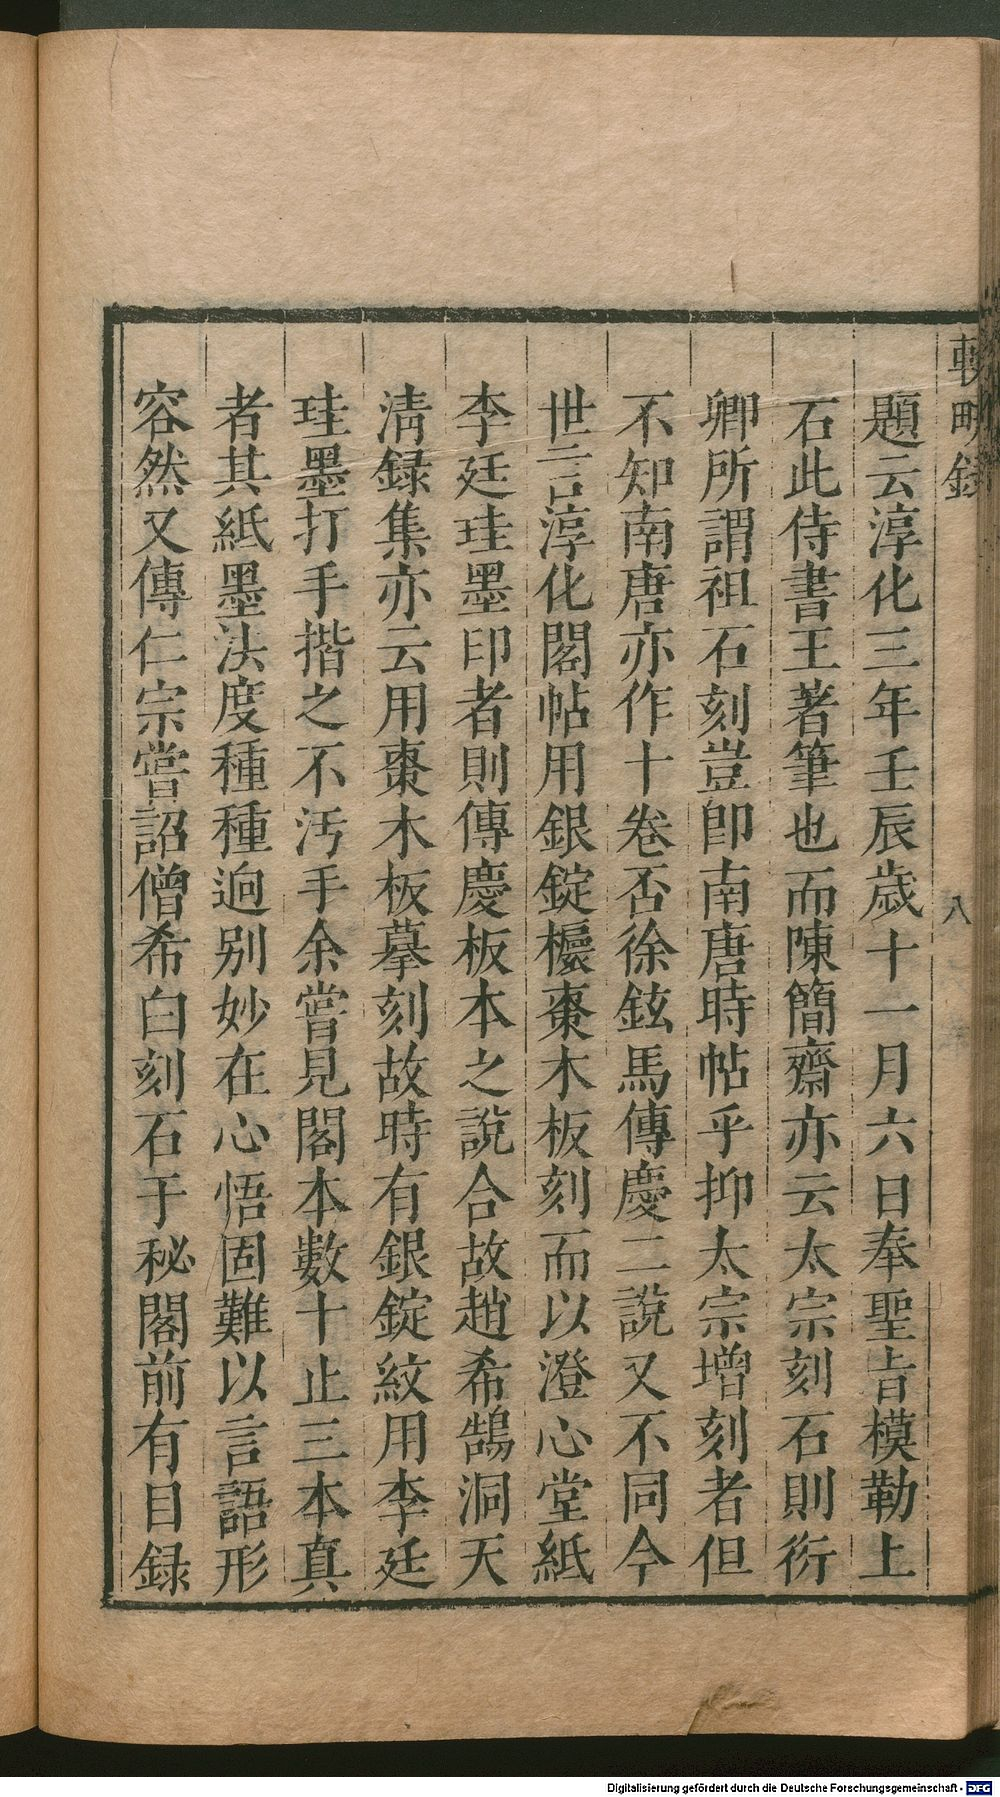 題云淳化三年壬辰歲十一月六日奉聖旨模勒上
石此侍書王著筆也而陳簡齋亦云太宗刻石則衍
卿所謂祖石刻豈卽南唐時帖乎抑太宗增刻者但
不知南唐亦作十卷否徐鉉馬傳慶二說又不同今
世言淳化閣帖用銀錠櫼棗木板刻而以澄心堂紙
李廷珪墨印者則傳慶板本之說合故趙希鵠洞天
淸録集亦云用棗木板摹刻故時有銀錠紋用李廷
珪墨打手揩之不汚手余嘗見閣本數十止三本真
者其紙墨法度種種逈别妙在心悟固難以言語形
容然又傳仁宗嘗詔僧希白刻石于秘閣前有目録
八
Digitalisierung gefördert durch die Deutsche Forschungsgemeinschaft - DFG